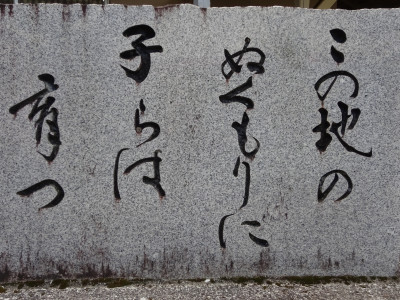 この地の
ぬくもりに
子らは
育つ